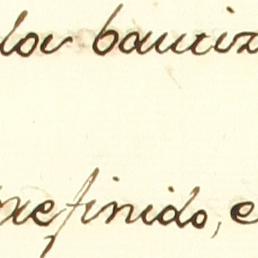 los bautiz
refinido, e